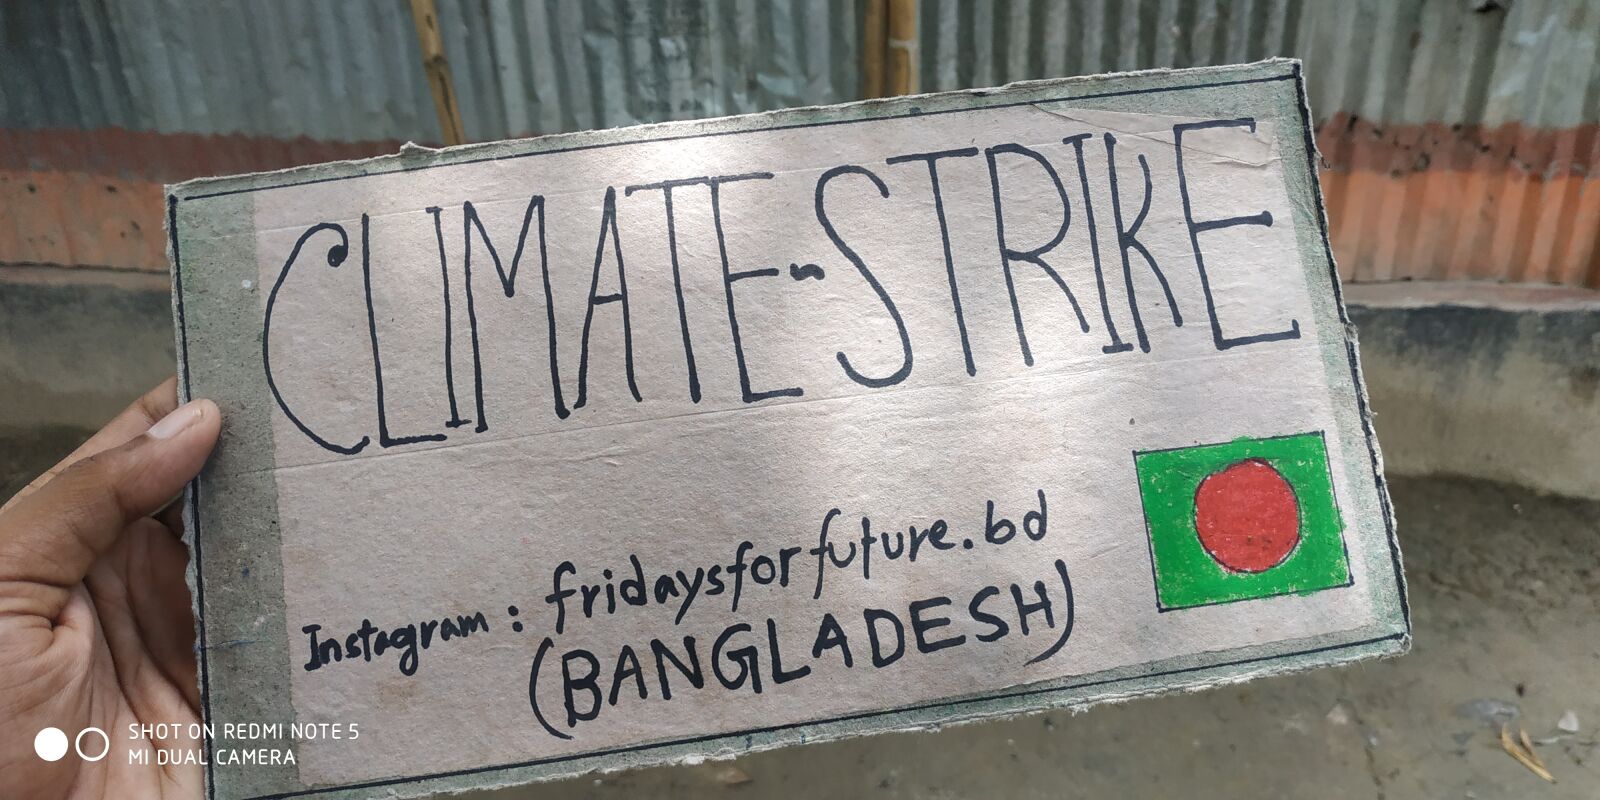 CLIMATE-STRIKE
Instagram : fridaysforfuture.bd
(BANGLADESH)
SHOT ON REDMI NOTE 5
MI DUAL CAMERA